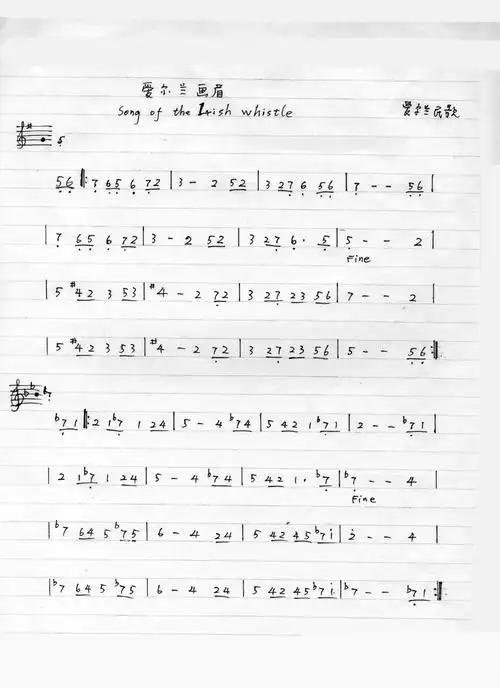 爱尔兰画眉
Song of the Irish whistle
爱尔兰民歌
# 5
56 ‖: 7 65 6 72 | 3 - 2 52 | 3 27 6 56 | 7 - - 56 |
| 7 65 6 72 | 3 - 2 52 | 3 27 6 · 5 | 5 - - 2 |
Fine
| 5 #42 3 53 | #4 - 2 72 | 3 27 23 56 | 7 - - 2 |
| 5 #42 3 53 | #4 - 2 72 | 3 27 23 56 | 5 - - 56 :‖
b b b7
b71 ‖: 2 1b7 1 24 | 5 - 4 b74 | 5 42 1 b71 | 2 - - b71 |
| 2 1b7 1 24 | 5 - 4 b74 | 5 42 1 · b7 | b7 - - 4 |
Fine
| b7 64 5 b75 | 6 - 4 24 | 5 42 45 b7i | 2 - - 4 |
| b7 64 5 b75 | 6 - 4 24 | 5 42 45 b7i | b7 - - b71 :‖